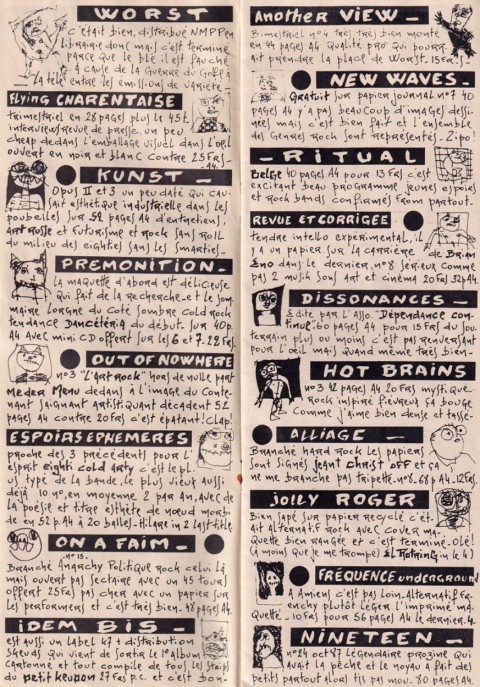 WORST
c'était bien, distribué NMPP en
librairie donc mais c'est terminé
parce que le blé il est fauché
à cause de la guerre du Golfe à
la télé entre les émissions de variété-
FLYING CHARENTAISE
trimestriel en 28 pages plus le 45t.
interviens revue de presse, un peu
cheap dedans l'emballage visuel dans l'oeil
ouvert en noir et blanc contre 25Fas-
A4-
KUNST-
Opus II et 3 un peu daté qui cau-
sait esthétique industrielle dans les
poubelles sur 52 pages A4 d'entretiens,
art russe et futurisme et rock sans roll
du milieu des eighties sans les smarties-
PREMONITION-
la maquette d'abord est délicieuse
qui fait de la recherche-et le som-
maire lorgne du coté sombre cold rock
tendance Dancétéria du début. sur 40p.
A4 avec mini CD offert sur les 6 et 7. 28Fas.
OUT OF NOWHERE
no3 "L'art Rock" hors de nulle part
dedans à l'image du conte-
nant saignant artistiquant décadent 52
pages A4 contre 20Fas c'est épatant! clap!
ESPOIRS EPHEMERES
proche des 3 précédents pour l'
esprit eighti cold arty c'est le pl
us type de la bande, le plus vieux aussi
déjà 10 no, en moyenne 2 par an, avec de
la poésie et titre esthète de moeurs morbi
de en 52p A4 à 20 balles-
ON A FAIM-
-no 15-
Branché Anarchy Politique rock celui là
mais ouvert pas sectaire avec un 45 tours
offert 25Fas pas cher avec un papier sur
les performers et c'est très bien. 48 pages A4.
IDEM BIS-
est aussi un label K7 + distribution
Skeuds qui vient de sortir le 1er album
cartonné et tout compile de tous les
du petit keupon 27Fas p.c. et c'est bon-
Another VIEW-
Bimestriel no4 très très bien monté
en 44 pages A4 qualité pro qui pourr-
ait prendre la place de Worst. 15Fas.
NEW WAVES-
Gratuit sur papier journal no7 40
pages A4 y a pas beaucoup d'images dessi-
nées mais c'est bien fait et l'ensemble
des Genres Rock sont représentés. Zipo!
-RITUAL
Belge 40 pages A4 pour 13Fas c'est
excitant beau programme jeunes espoirs
et rock bands confirmés from partout.
REVUE ET CORRIGÉE
tendre intello expérimental, il
y a un papier sur la carrière
de Brian
Eno dans le dernier, no8 sérieux comme
pas 2 musik sons art et cinéma 20Fas 32pA4.
DISSONANCES-
édité par l'Asso. "Dépendance con-
tinue" 60 pages A4 pour 15Fas du sou-
terrain plus ou moins c'est pas renversant
pour l'oeil mais quand même très bien-
HOT BRAINS
no3 42 pages A4 20Fas mystique
rock inspiré fiévreux ça bouge
comme j'aime bien dense et tassé-
ALLIAGE-
Branché hard rock les papiers
sont signés Jeant Christ OFF et ça
ne me branche pas tripette-no8-68p A4-12Fas.
JOLLY ROGER
Bien sapé sur papier recyclé c'ét-
ait alternatif rock avec cover ma-
quette bien rangée et c'est terminé-Olé!
(à moins que je me trompe) El Rotring in le 4)
FRÉQUENCE underground
à Amiens c'est pas loin-Alternatif fre-
nchy plutôt léger l'imprimé ma
quette-10Fas pour 56 pages A4 le dernier. 4.
NINETEEN-
no24 oct 87 Légendaire prozine qui
avait la pêche et le noyau a fait des
petits partout alors tis pas mou. 80 pages A4.